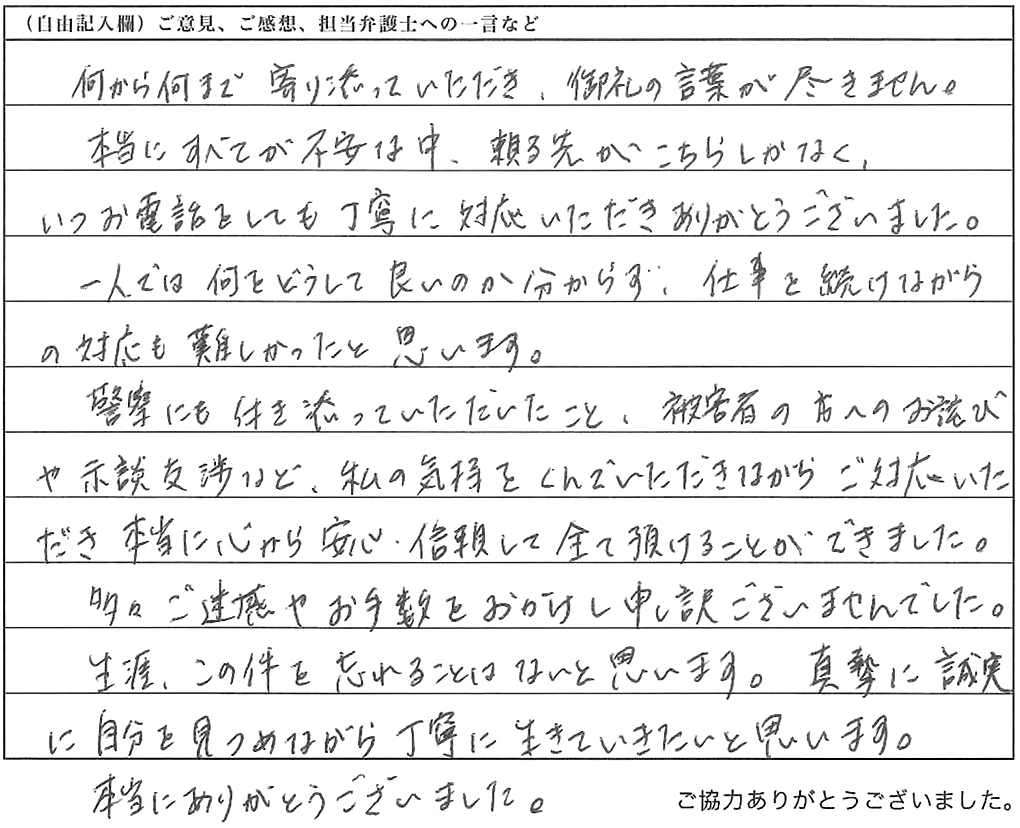 （自由記入欄）ご意見、ご感想、担当弁護士への一言など
何から何まで寄り添っていただき、御礼の言葉が尽きません。
本当にすべてが不安な中、頼る先がこちらしかなく、
いつお電話をしても丁寧に対応いただきありがとうございました。
一人では何をどうして良いのか分からず、仕事を続けながら
の対応も難しかったと思います。
警察にも付き添っていただいたこと、被害者の方へのお詫び
や示談交渉など、私の気持をくんでいただきながらご対応いた
だき本当に心から安心・信頼して全て預けることができました。
多々ご迷惑やお手数をおかけし申し訳ございませんでした。
生涯、この件を忘れることはないと思います。真摯に誠実
に自分を見つめながら丁寧に生きていきたいと思います。
本当にありがとうございました。
ご協力ありがとうございました。